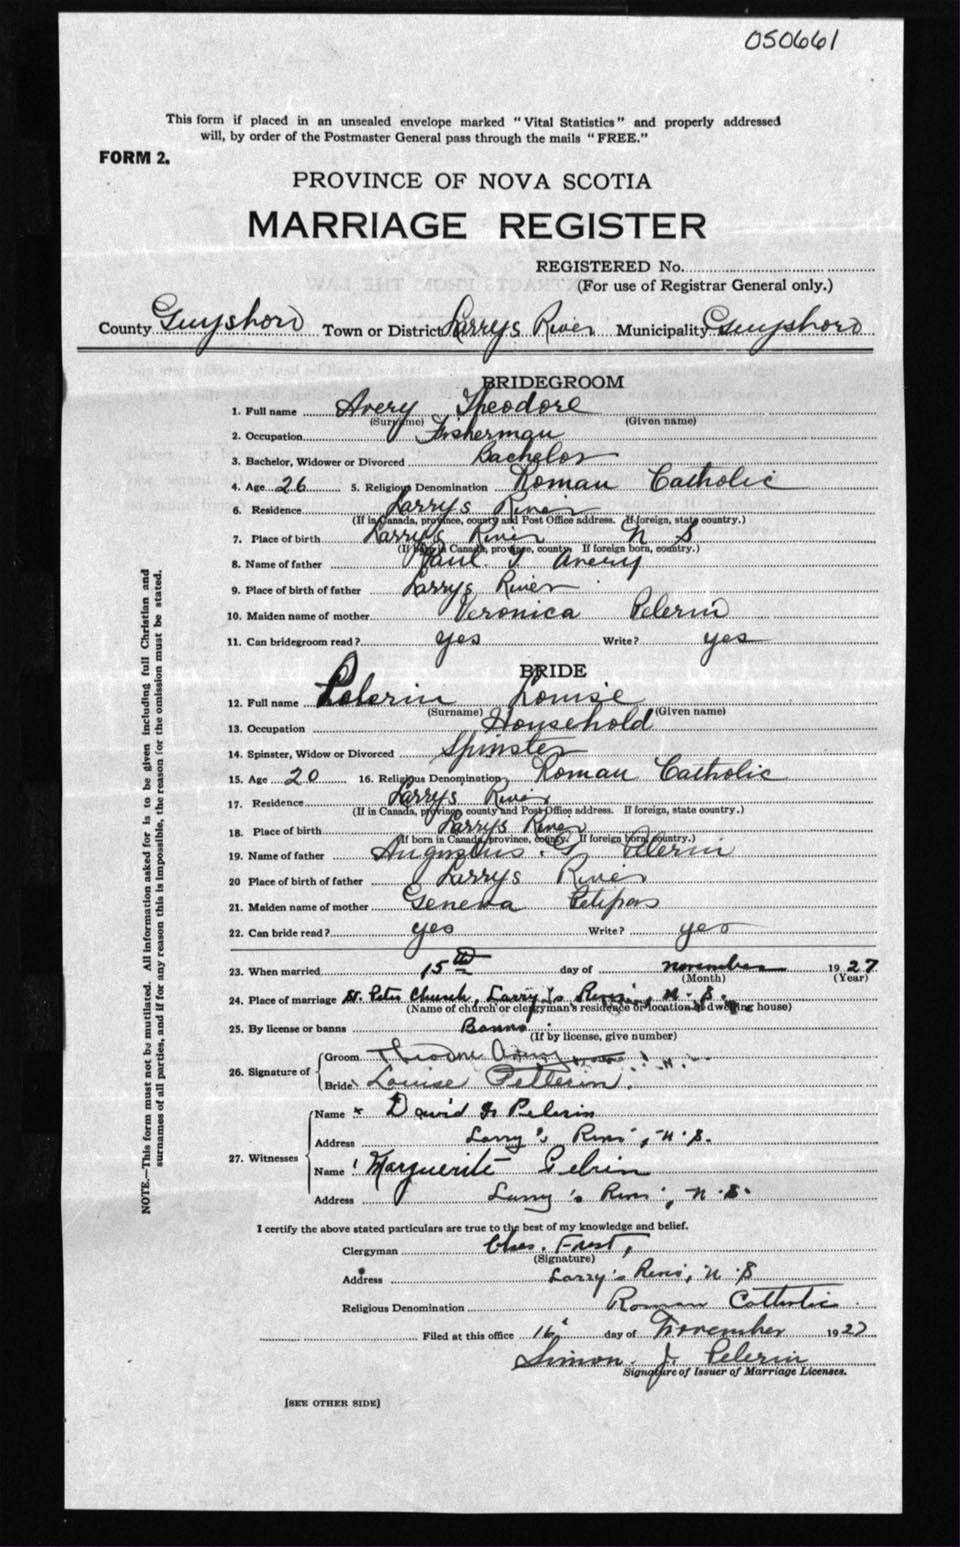 050661
This form if placed in an unsealed envelope marked "Vital Statistics" and properly addressed
will, by order of the Postmaster General pass through the mails "FREE."
FORM 2.
PROVINCE OF NOVA SCOTIA
MARRIAGE REGISTER
REGISTERED No.
(For use of Registrar General only.)
County Guysboro Town or District Larrys River Municipality Guysboro
BRIDEGROOM
1. Full name Avery Theodore
(Surname) (Given name)
2. Occupation Fisherman
3. Bachelor, Widower or Divorced Bachelor
4. Age 26 5. Religious Denomination Roman Catholic
6. Residence Larrys River
(If in Canada, province, county and Post Office address. If foreign, state country.)
7. Place of birth Larrys River N S
(If born in Canada, province, county. If foreign born, country.)
8. Name of father Paul Avery
9. Place of birth of father Larrys River
10. Maiden name of mother Veronica Pelerin
11. Can bridegroom read? yes Write? yes
BRIDE
12. Full name Pelerin Louise
(Surname) (Given name)
13. Occupation Household
14. Spinster, Widow or Divorced Spinster
15. Age 20 16. Religious Denomination Roman Catholic
17. Residence Larrys River
(If in Canada, province, county and Post Office address. If foreign, state country.)
18. Place of birth Larrys River
(If born in Canada, province, county. If foreign born, country.)
19. Name of father Augustus Pelerin
20 Place of birth of father Larrys River
21. Maiden name of mother Geneva Petipas
22. Can bride read? yes Write? yes
23. When married 15th day of november 1927
(Month) (Year)
24. Place of marriage St. Peter Church, Larry's River, N. S.
(Name of church or clergyman's residence or location of dwelling house)
25. By license or banns Banns
(If by license, give number)
26. Signature of
Groom Theodore Avery
Bride Louise Pellerin.
27. Witnesses
Name David Pelerin
Address Larry's River, N. S.
Name Marguerite
Address Larry's River, N. S.
I certify the above stated particulars are true to the best of my knowledge and belief.
Clergyman Chas. Forest,
(Signature)
Address Larry's River, N. S
Religious Denomination Roman Catholic
Filed at this office 16 day of November 1927
Simon J. Pelerin
Signature of Issuer of Marriage Licenses.
[SEE OTHER SIDE]
NOTE.—This form must not be mutilated. All information asked for is to be given including full Christian and
surnames of all parties, and if for any reason this is impossible, the reason for the omission must be stated.